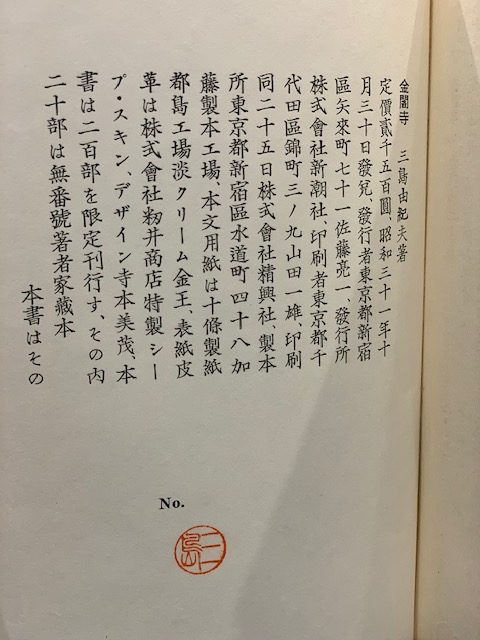 金閣寺　三島由紀夫著
定價貳千五百圓、昭和三十一年十
月三十日發兌、發行者東京都新宿
區矢來町七十一佐藤亮一、發行所
株式會社新潮社、印刷者東京都千
代田區錦町三ノ九山田一雄、印刷
同二十五日株式會社精興社、製本
所東京都新宿區水道町四十八加
藤製本工場、本文用紙は十條製紙
都島工場淡クリーム金王、表紙皮
革は株式會社籾井商店特製シー
プ・スキン、デザイン寺本美茂、本
書は二百部を限定刊行す、その内
二十部は無番號著者家藏本
本書はその
No.
三島